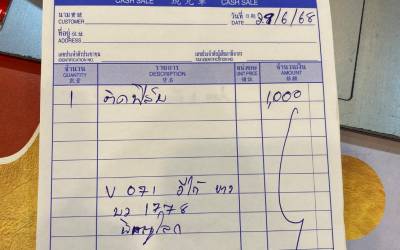 CASH SALE 現兌單 CASH SALE
นามลูกค้า CUSTOMER วันที่ DATE 28/6/68
ที่อยู่ ADDRESS
เลขประจำตัวประชาชน IDENTIFICATION NO. เลขประจำตัวผู้เสียภาษีอากร
จำนวน QUANTITY รายการ DESCRIPTION หน่วยละ UNIT PRICE จำนวนเงิน AMOUNT
1 ติดฟิล์ม 1,000
V 071 อีโก้ ขาว
บว 1778
พิษณุโลก